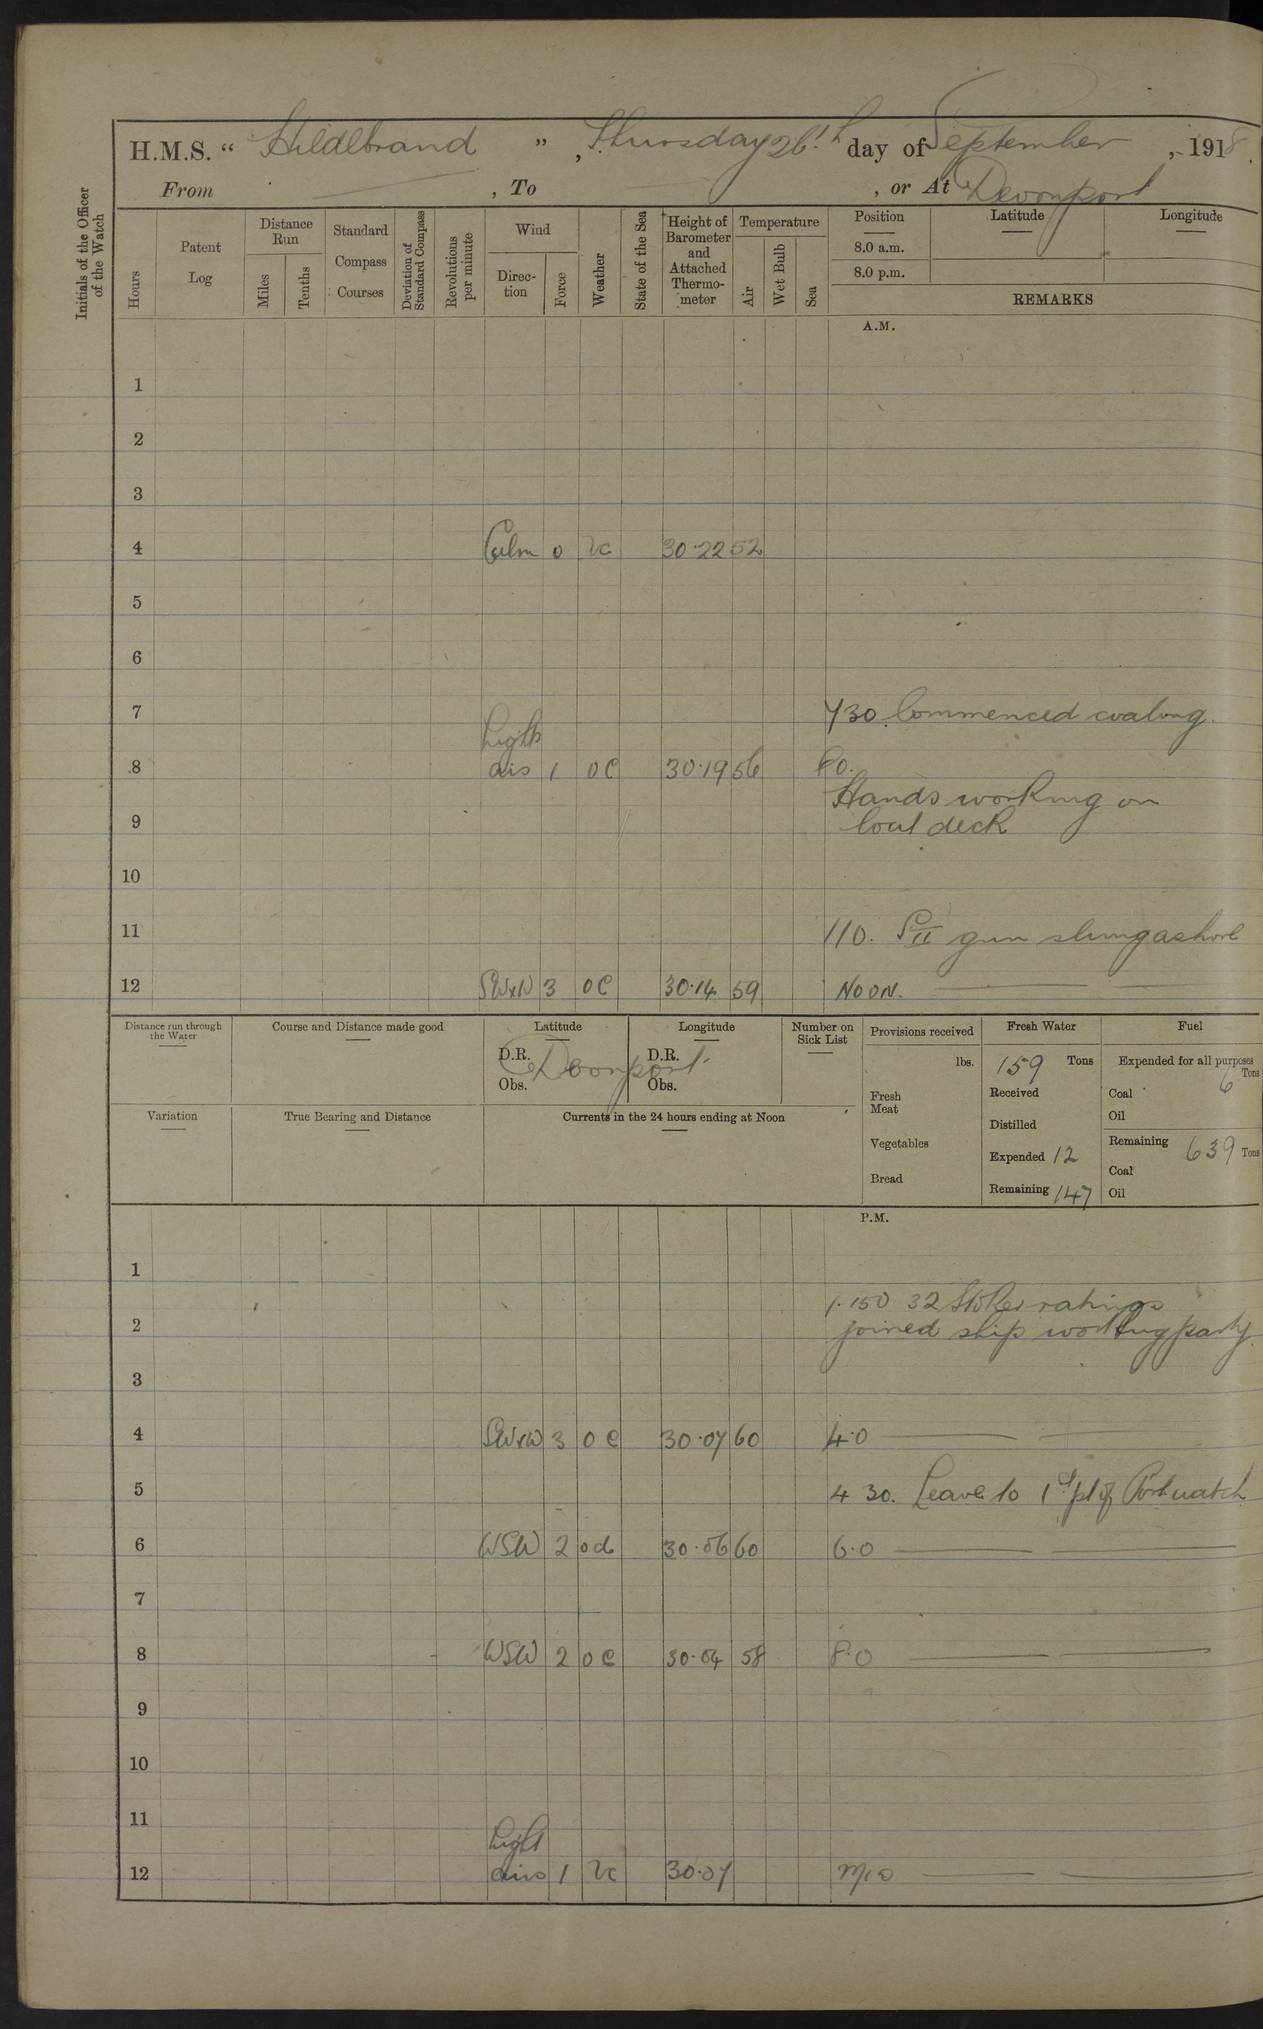 H.M.S. “ Hildebrand ” , Thursday 26th day of September , 1918.
From , To , or At Devonport
Initials of the Officer of the Watch
Hours
Patent Log
Distance Run
Miles
Tenths
Standard Compass Courses
Deviation of Standard Compass
Revolutions per minute
Wind
Direc-tion
Force
Weather
State of the Sea
Height of Barometer and Attached Thermo-meter
Temperature
Air
Wet Bulb
Sea
Position Latitude Longitude
8.0 a.m.
8.0 p.m.
REMARKS
A.M.
1
2
3
4 Calm 0 bc 30.22 52
5
6
7 730 Commenced coaling.
Light
8 airs 1 oc 30.19 56 80.
Hands working on
9 boat deck
10
11 110. PII gun slung ashore
12 SWxW 3 oc 30.14 59 NOON.
Distance run through the Water
Course and Distance made good
Latitude
D.R.
Obs.
Longitude
D.R.
Obs.
Devonport
Number on Sick List
Provisions received
lbs.
Fresh Meat
Vegetables
Bread
Fresh Water
159 Tons
Received
Distilled
Expended 12
Remaining 147
Fuel
Expended for all purposes
Tons
Coal 6
Oil
Remaining 639 Tons
Coal
Oil
Variation
True Bearing and Distance
Currents in the 24 hours ending at Noon
P.M.
1
1.150 32 Stoker ratings
2 joined ship working party
3
4 SWxW 3 oc 30.07 60 4.0
5 4 30. Leave to 1st pt of Port watch
6 WSW 2 od 30.06 60 6.0
7
8 WSW 2 oc 30.04 58 8.0
9
10
11
Light
12 airs 1 bc 30.07 M/D